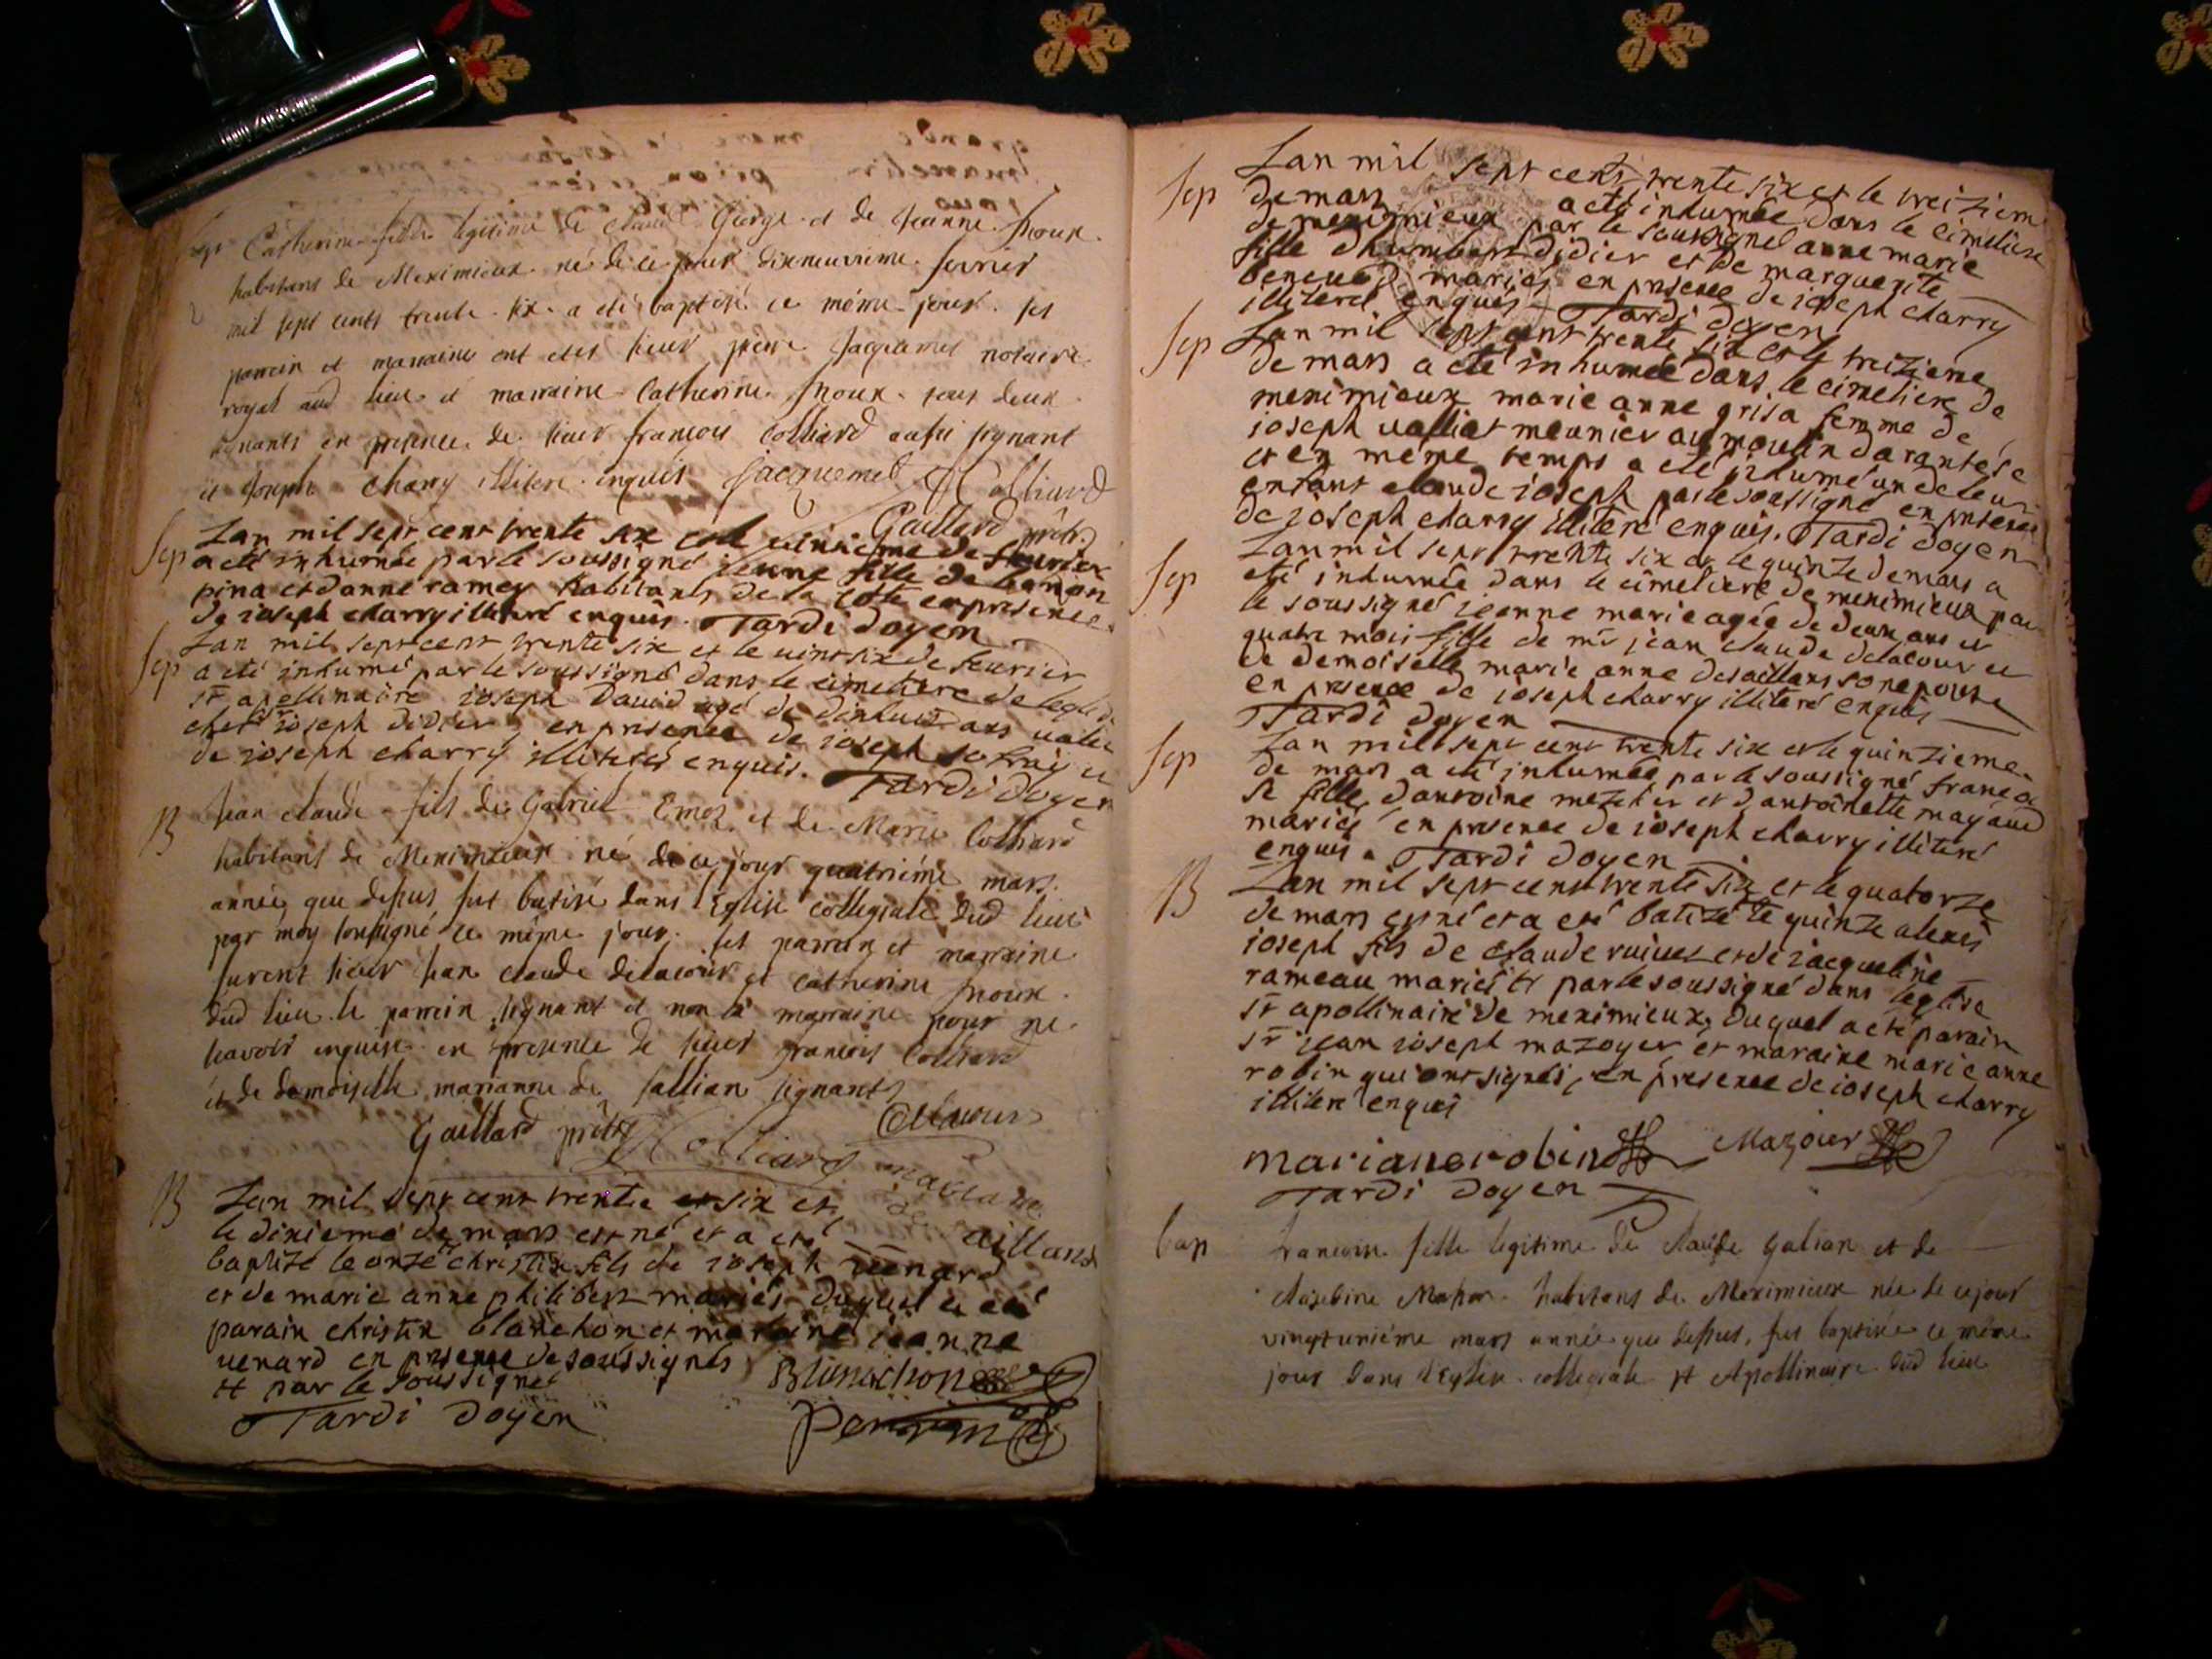 Bap Catherine fille legitime de Claude George et de Jeanne
habitans de Meximieux né de ce jour dixneuvieme fevrier
mil sept cents trente six a eté baptisé ce méme jour ses
parrein et marraine ont etes sieur pierre Jacquemet notaire
royal aud lieu et marraine Catherine tous deux
signants en presence de sieur françois Colliard aussi signant
et Joseph Charry illiteré enquis Jacquemet Colliard
Gaillard prêtre
Sep Lan mil sept cent trente six et le vintieme de feurier
a eté inhumée par le soussigné jeanne fille de benoit
pina et danne ramey habitants de la cote en presence
de ioseph charry illiteré enquis. Tardi doyen
Sep Lan mil sept cent trente six et le vint six de feurier
a eté inhumé par le soussigné dans le cimetiere de leglise
st apollinaire ioseph dauid agé de dixhuit ans valet
chez ioseph didier en presence de ioseph et
de ioseph charry illiterés enquis. Tardi doyen
B Jean claude fils de Gabriel Emoz et de Marie Colliard
habitans de Meximieux né de ce jour quatriéme mars
année que dessus fut batisé dans l'Eglise collegiale dud lieu
par moy soussigné ce méme jour. ses parrain et marraine
furent sieur Jean claude delacour et Catherine
dud lieu le parrein signant et non la marraine pour ne
savoir enquise en presence de sieur francois Colliard
et de demoiselle marianne de sallian signants
Gaillard prêtre Colliard Delacour
mariane
de saillans
B Lan mil sept cent trente et six et
le dixieme de mars est né et a eté
baptizé le onze christin fils de ioseph uenard
et de marie anne philibert mariés duquel a eté
parain christin blanchon et maraine ieanne
uenard en presence de soussignés
et par le soussigné Blanchon
Tardi doyen Perrin
Sep Lan mil sept cent trente six et le treizieme
de mars a eté inhumée dans le cimetiere
de meximieux par le soussigné anne marie
fille dhumbert didier et de marguerite
mariés en presence de ioseph charry
illiteré enquis Tardi doyen
Sep Lan mil sept cent trente six et le treizieme
de mars a eté inhumée dans le cimetiere de
meximieux marie anne grisa femme de
ioseph valliat meunier au moulin darantese
et en meme temps a eté inhumé un de leur
enfant claude ioseph par le soussigné en presence
de ioseph charry illiteré enquis. Tardi doyen
Sep Lan mil sept trente six et le quinze de mars a
eté inhumée dans le cimetiere de meximieux par
le soussigné jeanne marie agée de deux ans et
quatre mois fille de mr jean claude delacour et
de demoiselle marie anne desaillans son epouse
en presence de ioseph charry illiteré enquis
Tardi doyen
Sep Lan mil sept cent trente six et le quinzieme
de mars a eté inhumée par le soussigné francoi
se fille dantoine et dantoinette mayaud
mariés en presence de ioseph charry illiteré
enquis. Tardi doyen
B Lan mil sept cent trente six et le quatorze
de mars est né et a eté batizé le quinze alexis
ioseph fils de claude et de iacqueline
rameau mariés et par le soussigné dans leglise
st apollinaire de meximieux, duquel a eté parain
sr jean ioseph mazoyer et maraine marie anne
robin qui ont signés, en presence de ioseph charry
illiteré enquis
mariane robin Mazoier
Tardi doyen
bap francoise fille legitime de Claude Galian et de
habitans de Meximieux née de ce jour
vingtuniéme mars année que dessus, fut baptisée ce méme
jour dans l'Eglise collegiale St Apollinaire dud lieu